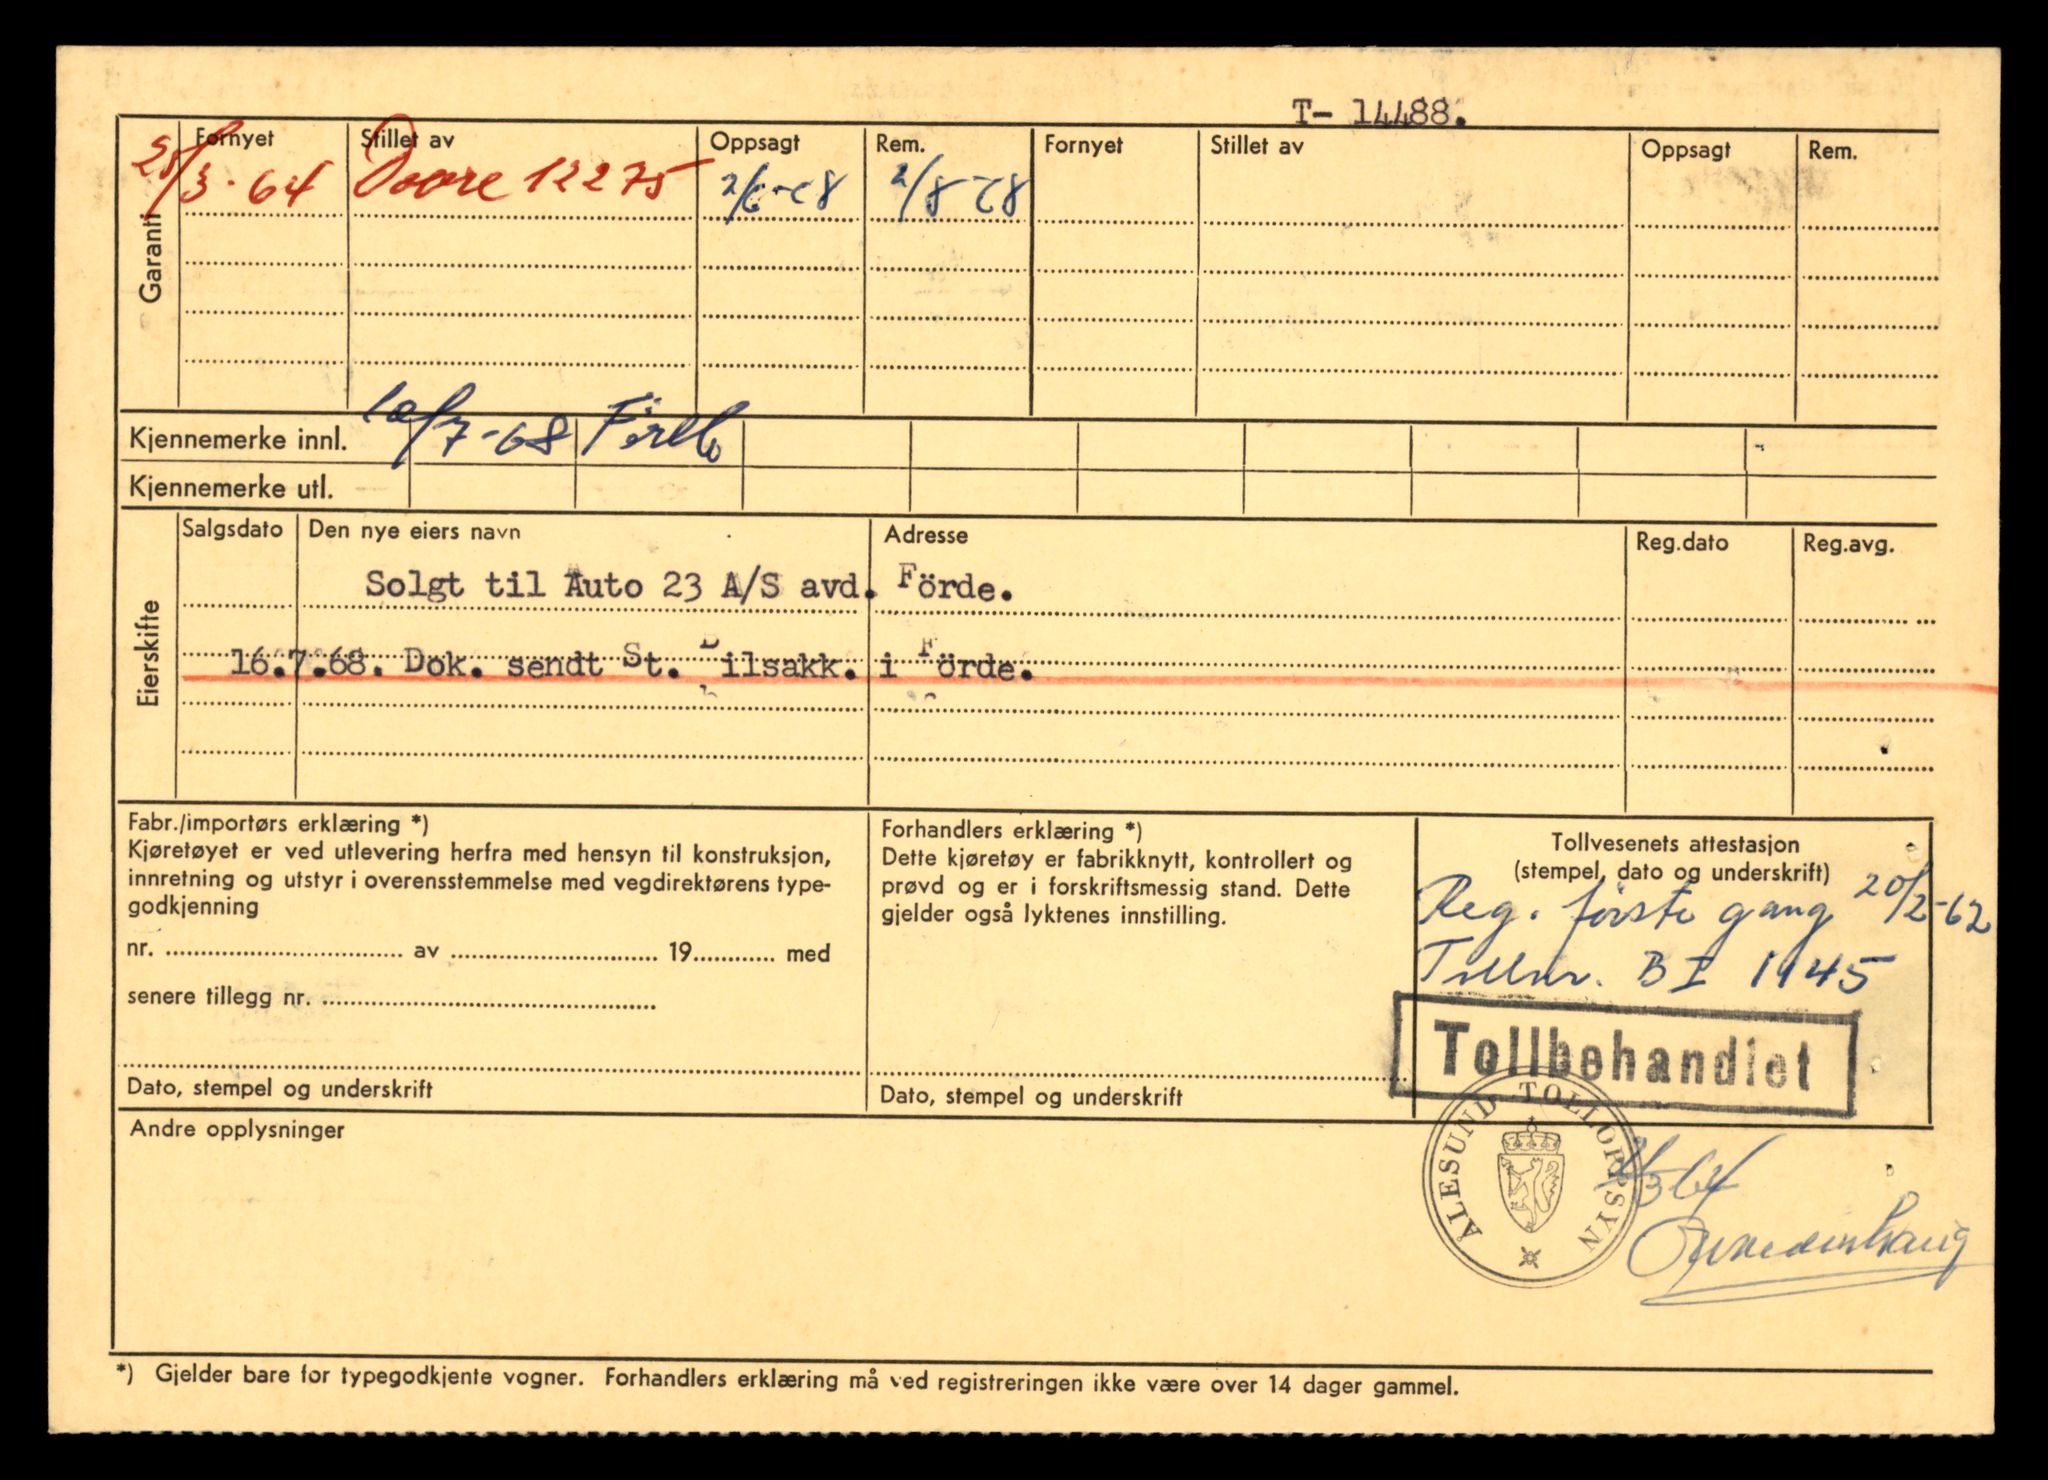 T- 14488.
Garanti
Fornyet Stillet av Oppsagt Rem. Fornyet Stillet av Oppsagt Rem.
25/3-64 12275 2/8-68
Kjennemerke innl. 10/7-68 Förde
Kjennemerke utl.
Eierskifte
Salgsdato Den nye eiers navn Adresse Reg.dato Reg.avg.
Solgt til Auto 23 A/S avd. Förde.
16.7.68. Dok. sendt St. Bilsakk. i Förde.
Fabr./importørs erklæring *)
Kjøretøyet er ved utlevering herfra med hensyn til konstruksjon,
innretning og utstyr i overensstemmelse med vegdirektørens type-
godkjenning
nr. .......... av .......... 19.......... med
senere tillegg nr. ..........
Dato, stempel og underskrift
Forhandlers erklæring *)
Dette kjøretøy er fabrikknytt, kontrollert og
prøvd og er i forskriftsmessig stand. Dette
gjelder også lyktenes innstilling.
Dato, stempel og underskrift
Tollvesenets attestasjon
(stempel, dato og underskrift)
Reg. første gang 20/2-62
Tollnr. B I 1145
Tollbehandlet
ÅLESUND TOLLOPPSYN
Andre opplysninger
*) Gjelder bare for typegodkjente vogner. Forhandlers erklæring må ved registreringen ikke være over 14 dager gammel.